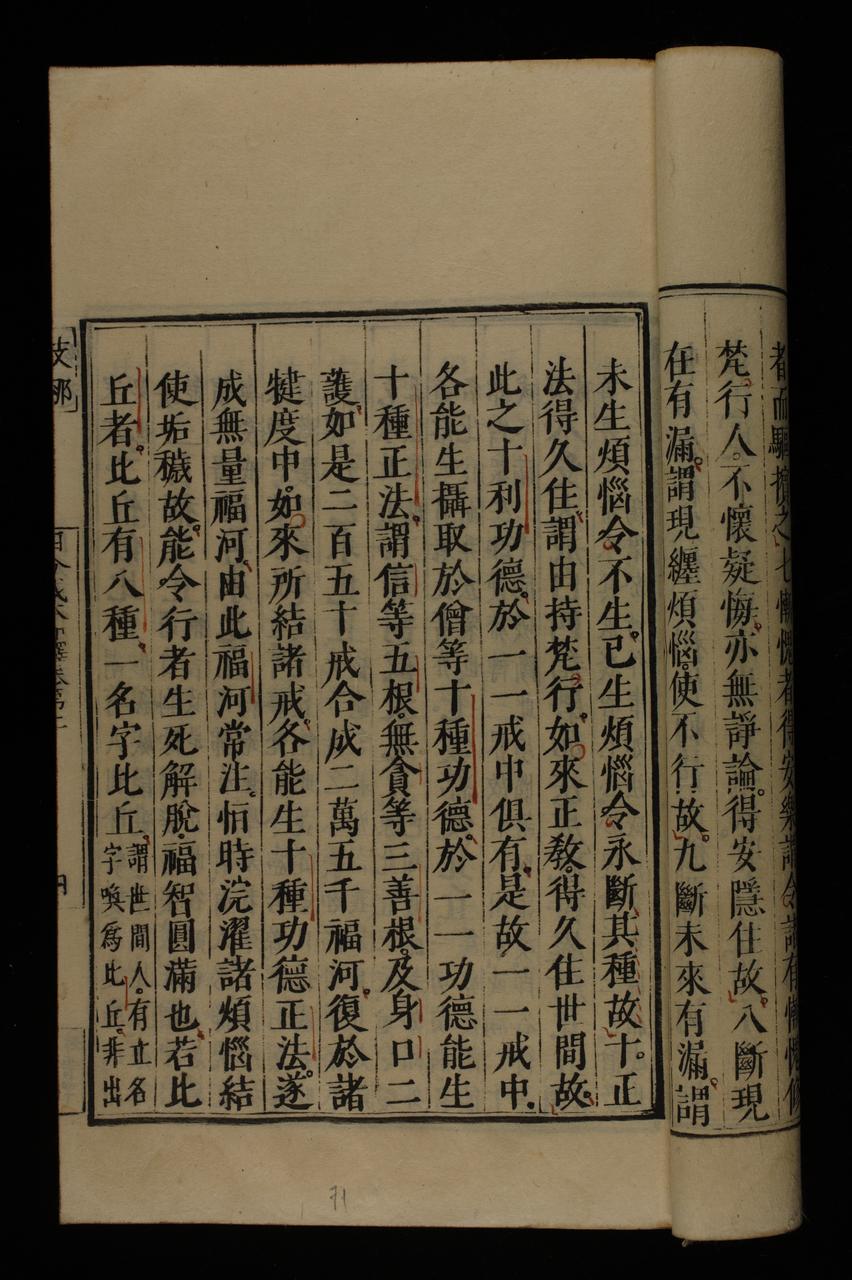 者得安樂
梵行人。不懷疑悔。亦無諍論。得安隱住故。八斷現
在有漏。謂現纏煩惱。使不行故。九斷未來有漏。謂
未生煩惱令不生。已生煩惱令永斷其種故。十。正
法得久住。謂由持梵行。如來正教。得久住世間故。
此之十利功德。於一一戒中俱有。是故一一戒中。
各能生攝取於僧等十種功德。於一一功德能生
十種正法。謂信等五根。無貪等三善根。及身口二
護。如是二百五十戒合成二萬五千福河。復於諸
犍度中。如來所結諸戒。各能生十種功德正法。遂
成無量福河。由此福河常注。恒時浣濯諸煩惱結
使垢穢故。能令行者生死解脫。福智圓滿也。若比
丘者。比丘有八種。一名字比丘。謂世間人。有立名
字喚爲比丘。非出
支那
卷第
四
71